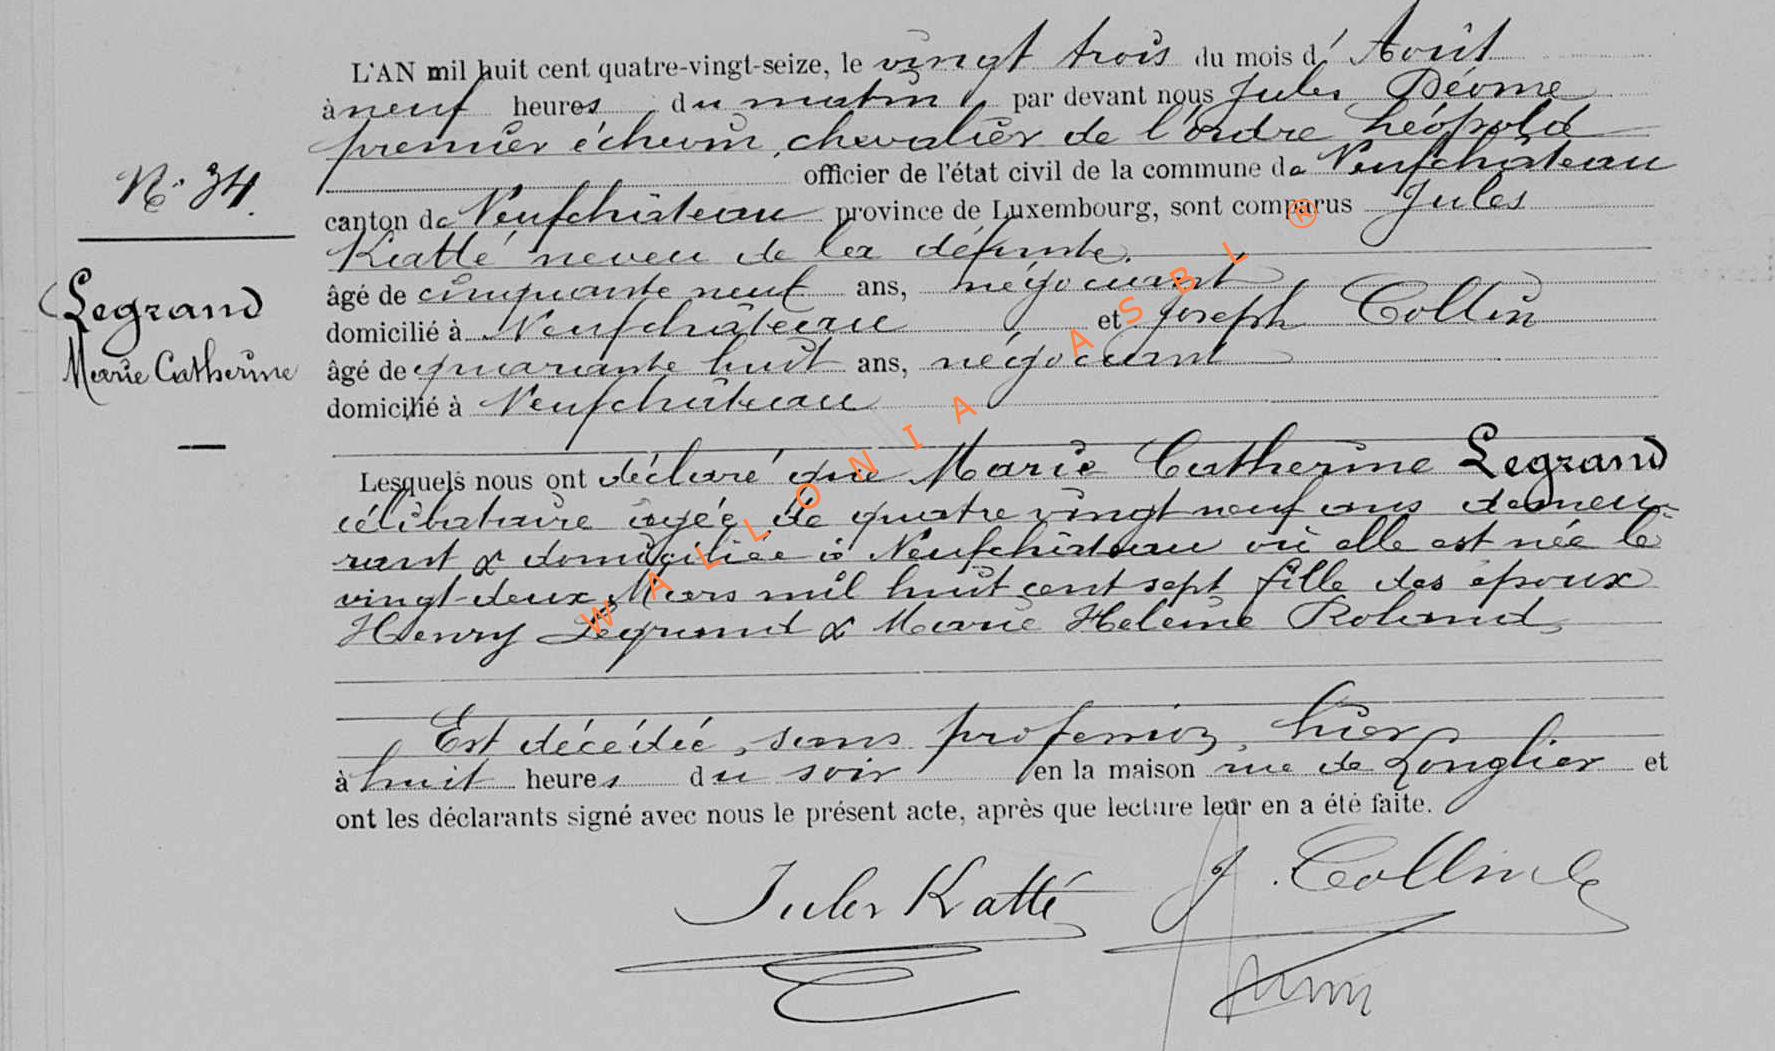 L'AN mil huit cent quatre-vingt-seize, le vingt trois du mois d' Août
à neuf heures du matin, par devant nous Jules Déome
premier échevin, chevalier de l'ordre Léopold
officier de l'état civil de la commune de Neufchâteau
N° 34.
canton de Neufchâteau province de Luxembourg, sont comparus Jules
Katté neveu de la défunte.
âgé de cinquante neuf ans, négociant
Legrand
domicilié à Neufchâteau et Joseph Collin
Marie Catherine
âgé de quarante huit ans, négociant
domicilié à Neufchâteau
Lesquels nous ont déclaré que Marie Catherine Legrand
célibataire âgée de quatre vingt neuf ans demeu-
rant & domiciliée à Neufchâteau où elle est née le
vingt-deux Mars mil huit cent sept fille des époux
Henry Legrand & Marie Heleine Roland,
Est décédée, sans profession, hier
à huit heures du soir en la maison rue de Longlier et
ont les déclarants signé avec nous le présent acte, après que lecture leur en a été faite.
Jules Katté J. Collin
WALLONIA ASBL ®